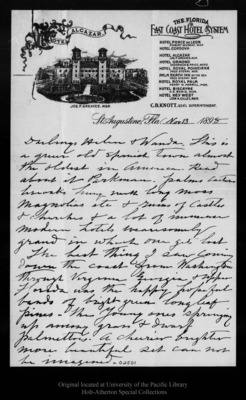 HOTEL ALCAZAR
THE FLORIDA
EAST COAST HOTEL SYSTEM
HOTEL PONCE DE LEON
HOTEL CORDOVA
HOTEL ALCAZAR
HOTEL ORMOND
HOTEL ROYAL POINCIANA
PALM BEACH INN
HOTEL ROYAL PALM
HOTEL BISCAYNE
HOTEL KEY WEST
C.B. KNOTT, GEN'L SUPERINTENDENT.
JOS. P. GREAVES, MGR
St. Augustine, Fla. Nov 13 1898
Darlings Helen & Wanda, This is
a queer old Spanish town almost
the oldest in America. Read
about it Parkman.
hung with long moss
Magnolias etc & ruins of Castles
& churches & a lot of
modern hotels wearisomely
grand in which one gets lost
The best thing I saw coming
down the coast from Washington
through Virginia Georgia &
Florida was the happy hopeful
bands of bright green longleaf
pines. The Young ones springing
up among Grass & dwarf
palmettos. A cheerier brighter
more beautiful set can not
be imagined. 02501
Original located at University of the Pacific Library
Holt-Atherton Special Collections